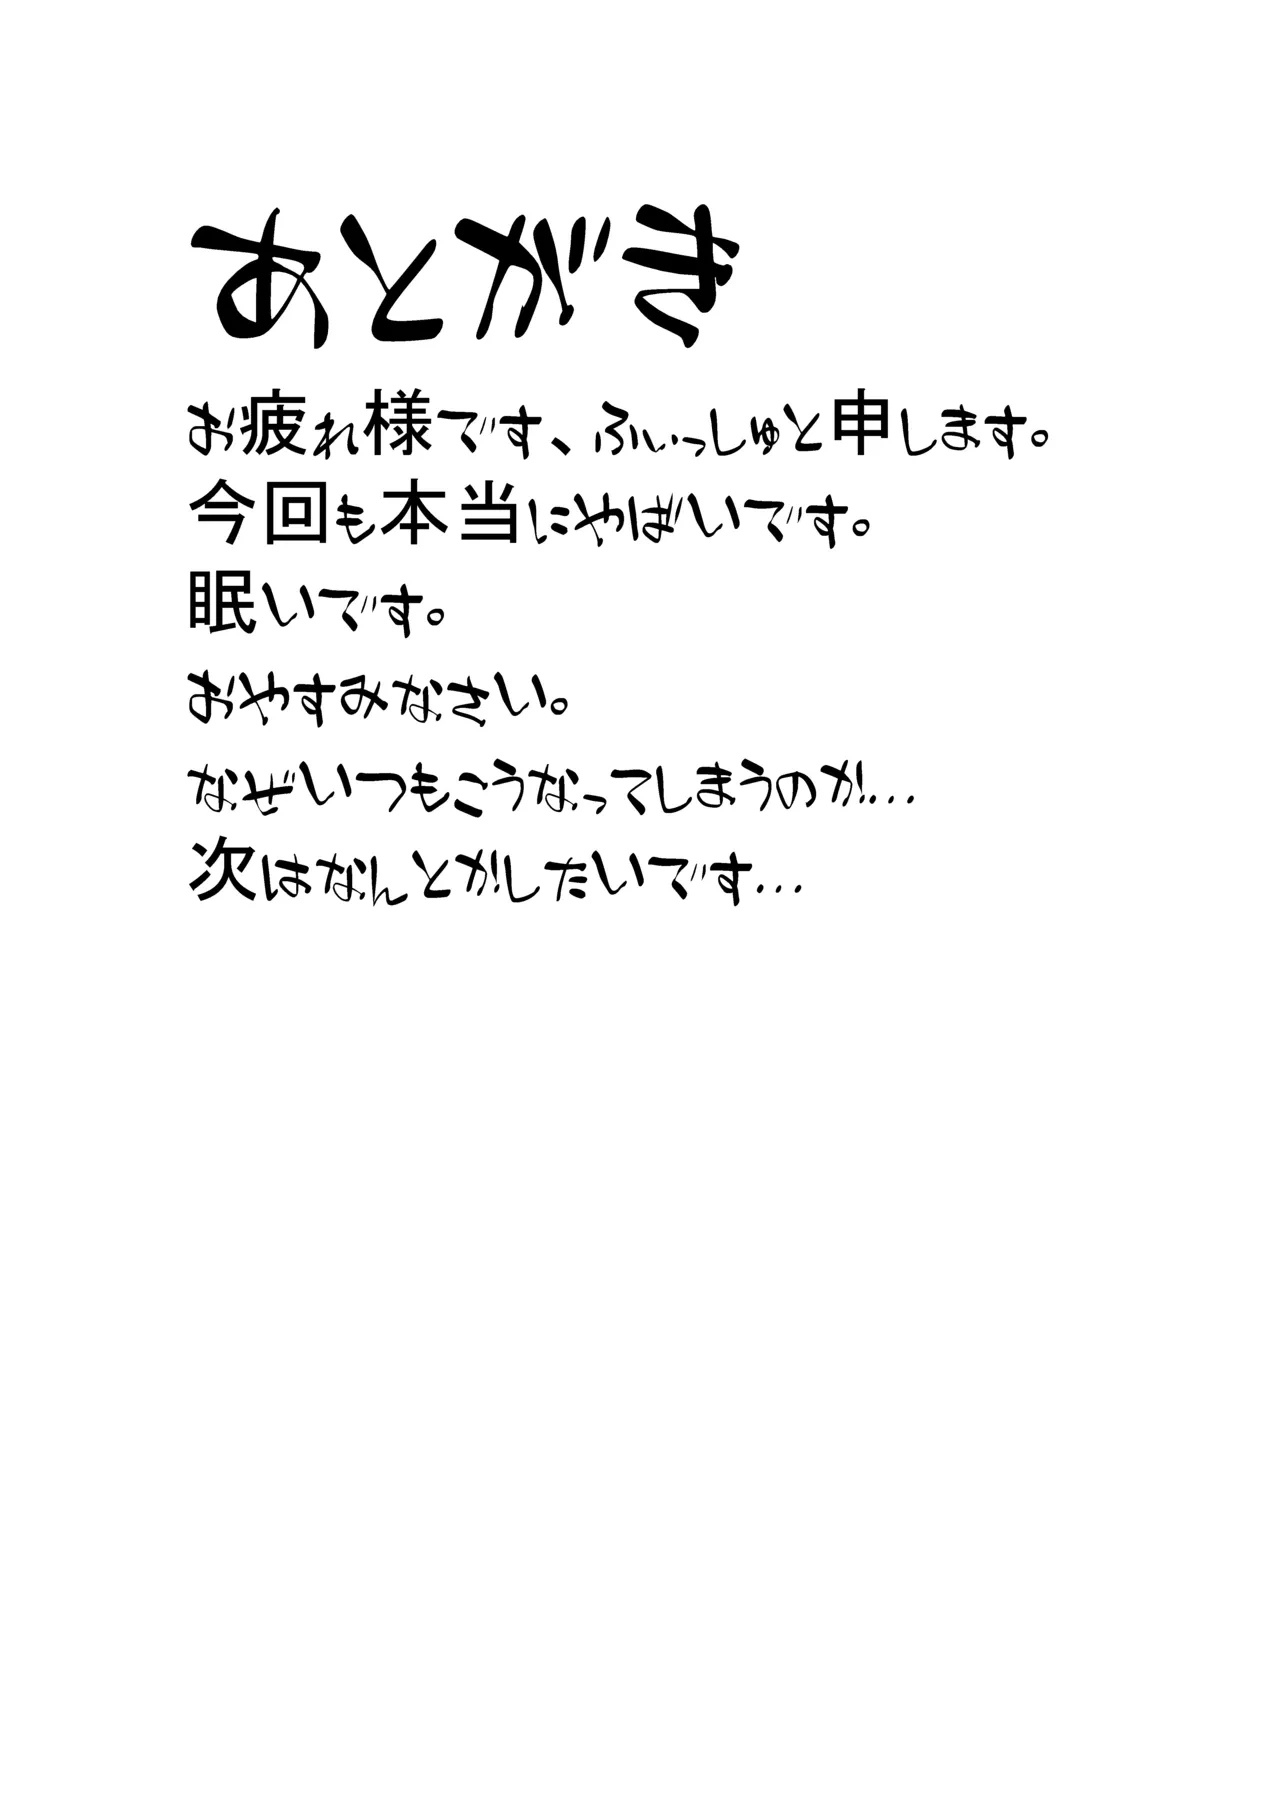 あとがき
お疲れ様です、ふぃっしゅと申します。
今回も本当にやばいです。
眠いです。
おやすみなさい。
なぜいつもこうなってしまうのか…
次はなんとかしたいです…